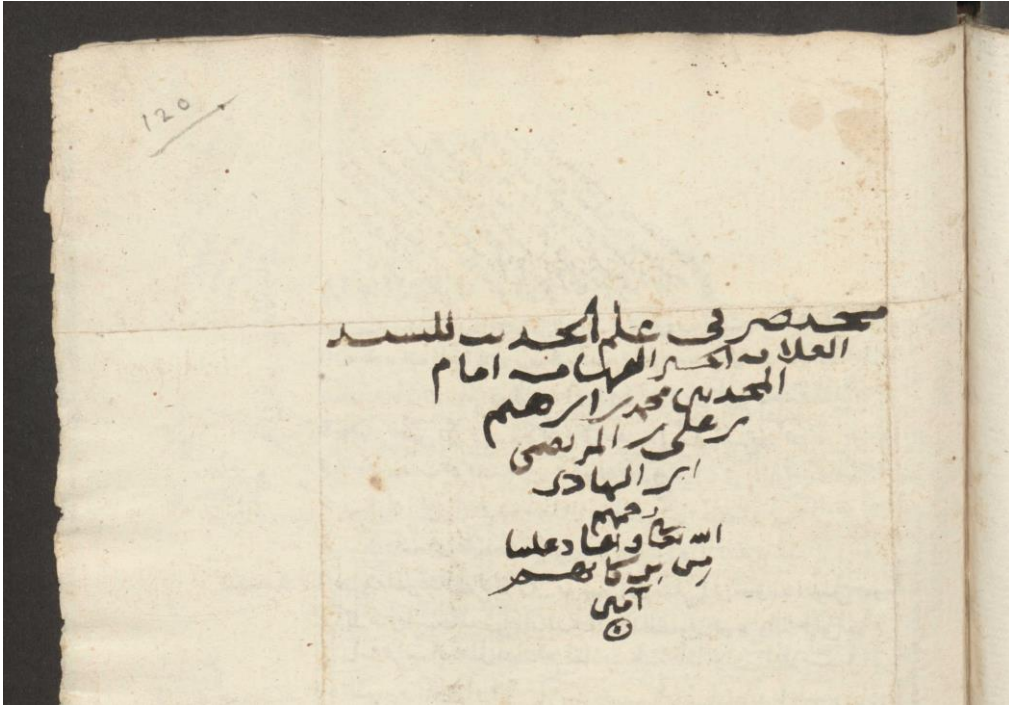 120
مختصر في علم الحديث للسيد
العلامه الحبر الفهامه امام
المحدثين محمد بن ابرهيم
بن علي بن المرتضى
ابن الهادي
رحمهم
الله تعا واعاد علينا
من بركاتهم
آمين